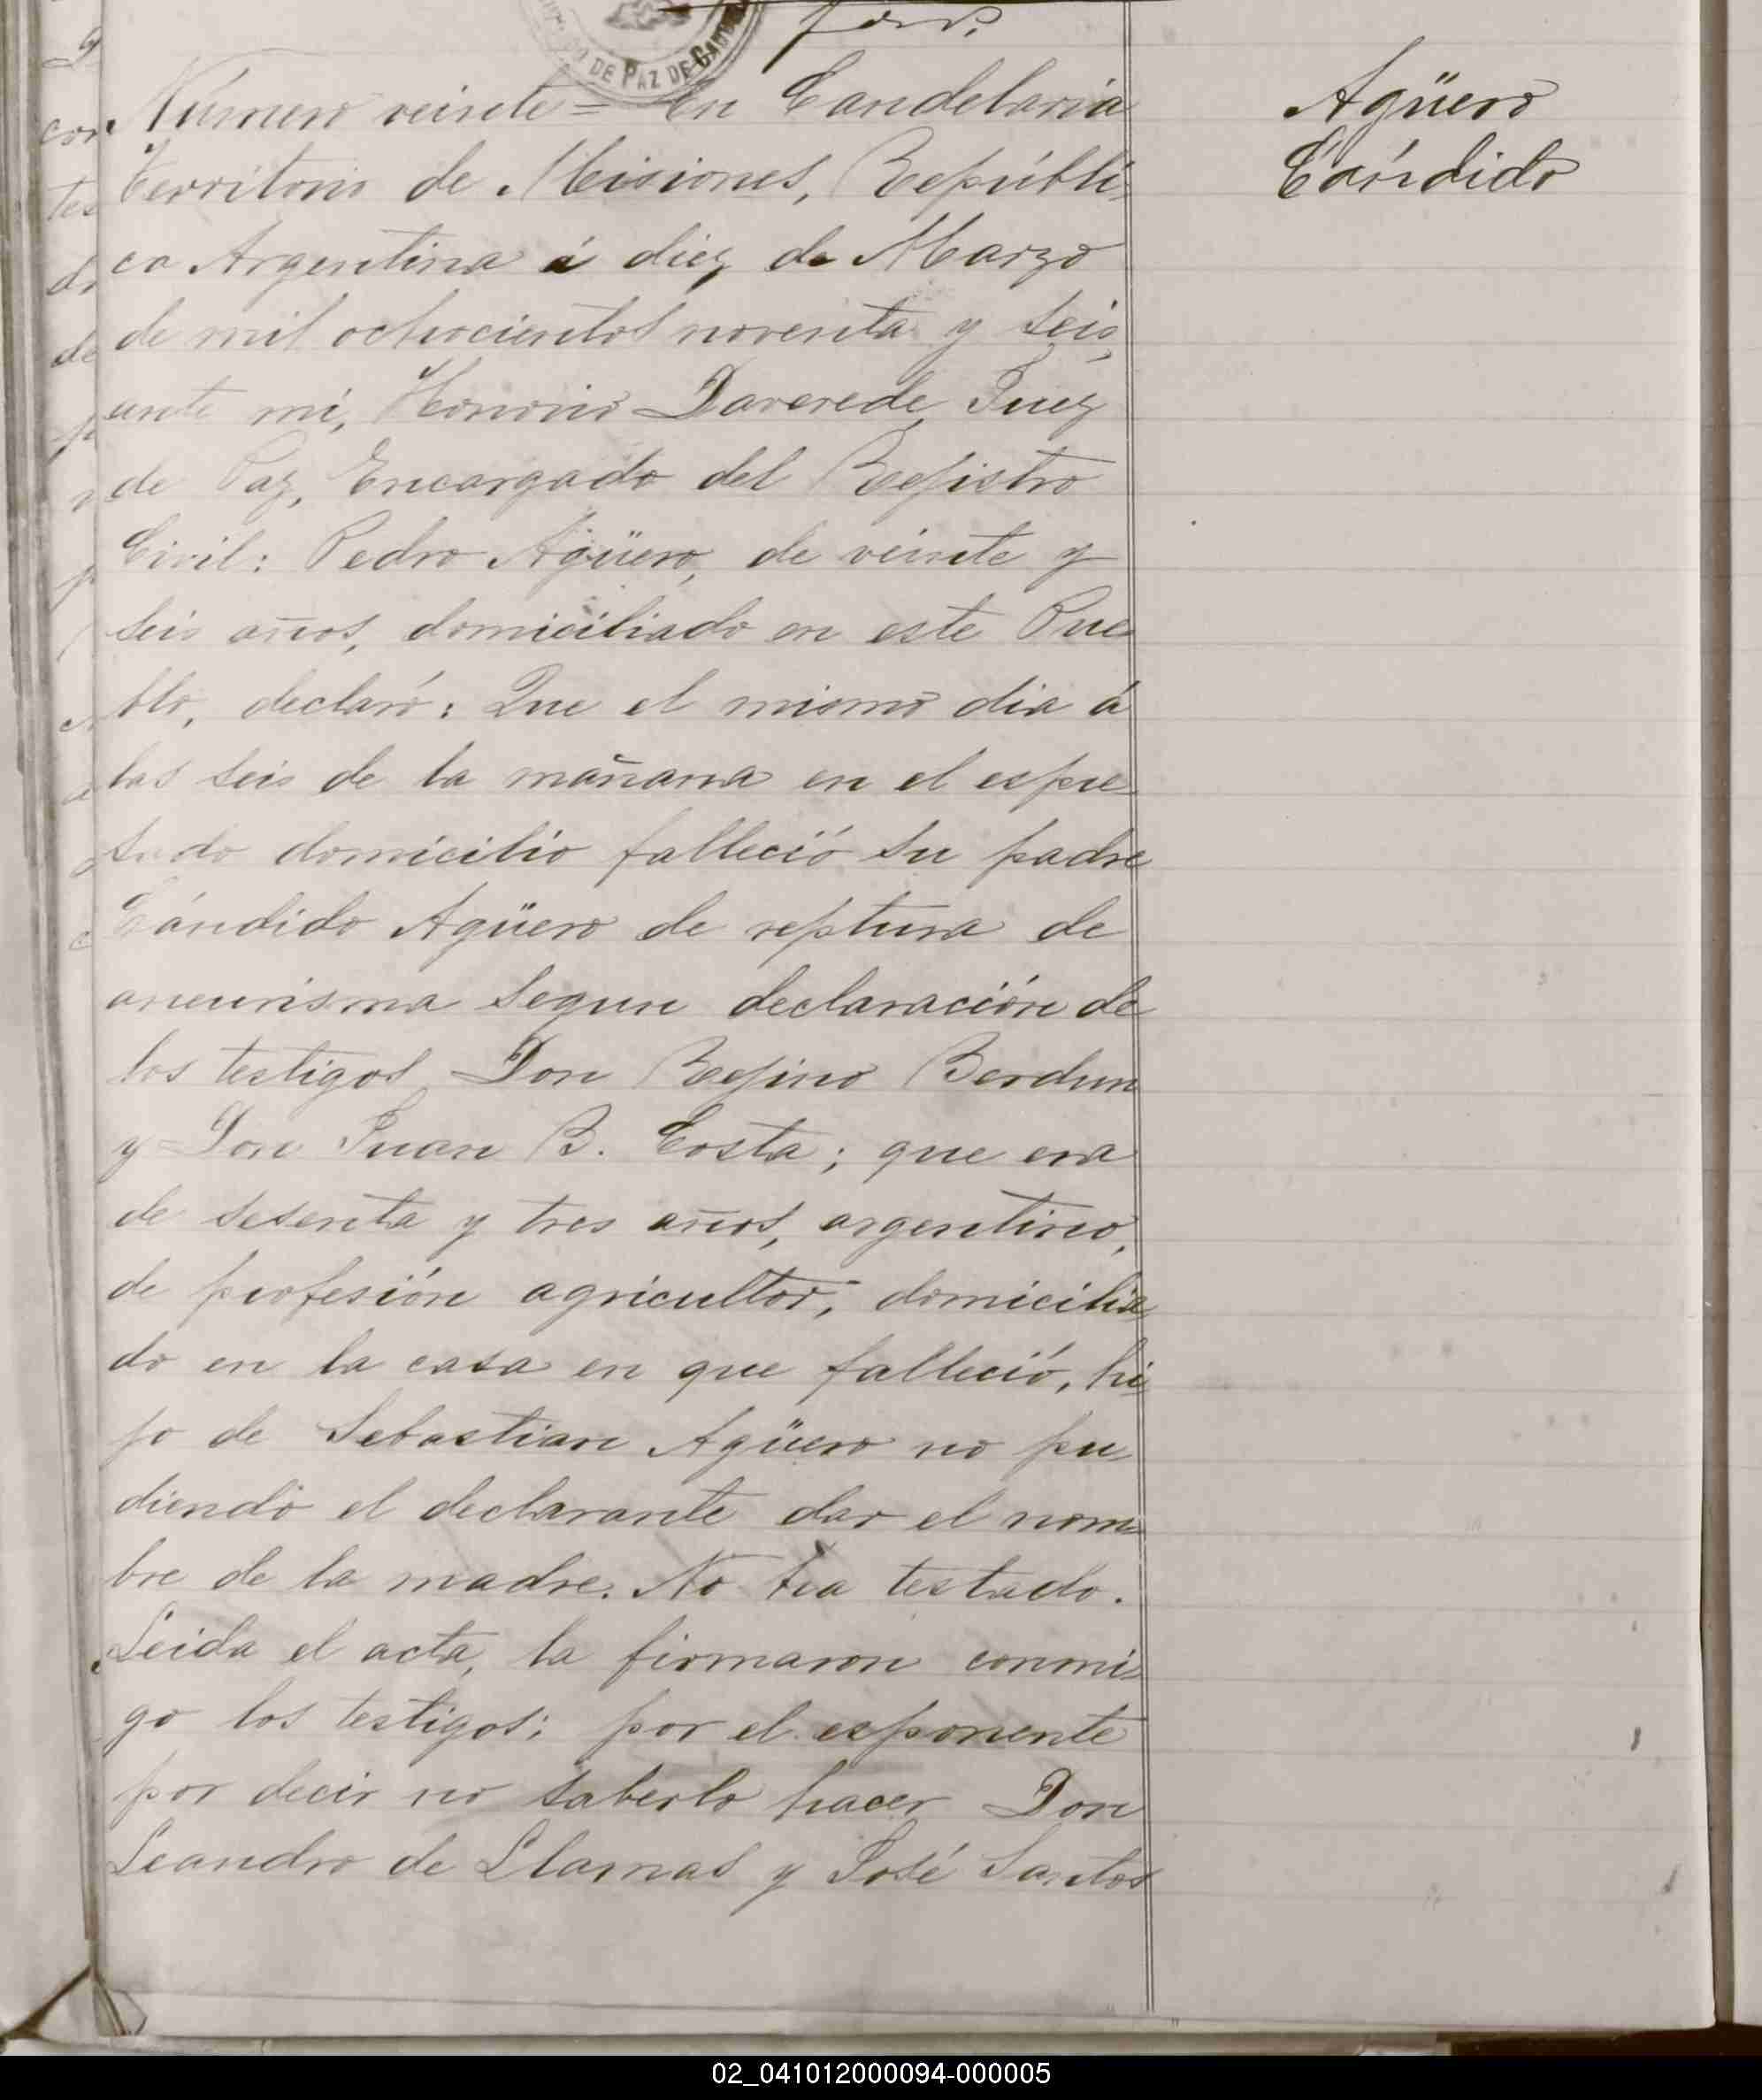 DE PAZ DE
Número veinte = En Candelaria
Territorio de Misiones, Repúbli-
ca Argentina á diez de Marzo
de mil ochocientos noventa y seis,
ante mí, Honorio Daverede, Juez
de Paz, Encargado del Registro
Civil: Pedro Agüero, de veinte y
seis años, domiciliado en este Pue
blo, declaró: Que el mismo dia á
las seis de la mañana en el espre-
sado domicilio falleció su padre
Cándido Agüero de reptura de
aneurisma segun declaración de
los testigos Don Regino Berdun
y Don Juan B. Costa; que era
de sesenta y tres años, argentino,
de profesión agricultor, domicilia
do en la casa en que falleció, hi-
jo de Sebastian Agüero no pu-
diendo el declarante dar el nom-
bre de la madre. No ha testado.
Leida el acta, la firmaron conmi-
go los testigos; por el esponente
por decir no saberlo hacer Don
Leandro de Llamas y José Santos
Agüero
Cándido
02_041012000094-000005